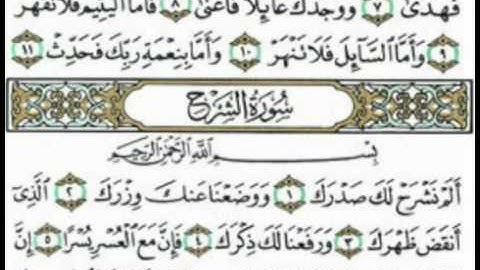 فَهَدَىٰ ٧ وَوَجَدَكَ عَائِلًا فَأَغْنَىٰ ٨ فَأَمَّا الْيَتِيمَ فَلَا تَقْهَرْ
٩ وَأَمَّا السَّائِلَ فَلَا تَنْهَرْ ١٠ وَأَمَّا بِنِعْمَةِ رَبِّكَ فَحَدِّثْ ١١
سُورَةُ الشَّرْحِ
بِسْمِ اللَّهِ الرَّحْمَٰنِ الرَّحِيمِ
أَلَمْ نَشْرَحْ لَكَ صَدْرَكَ ١ وَوَضَعْنَا عَنكَ وِزْرَكَ ٢ الَّذِي
أَنقَضَ ظَهْرَكَ ٣ وَرَفَعْنَا لَكَ ذِكْرَكَ ٤ فَإِنَّ مَعَ الْعُسْرِ يُسْرًا ٥ إِنَّ